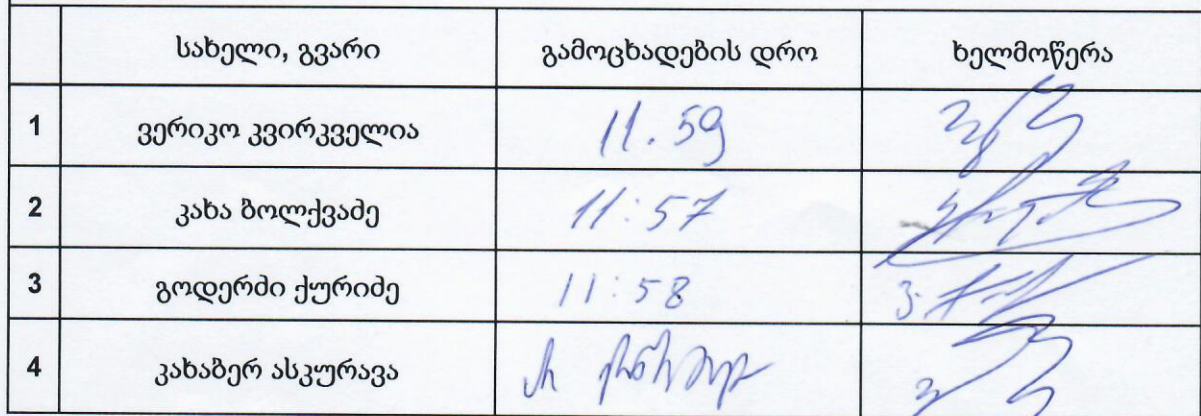 სახელი, გვარი გამოცხადების დრო ხელმოწერა
1 ვერიკო კვირკველია 11.59
2 კახა ბოლქვაძე 11:57
3 გოდერძი ქურიძე 11:58
4 კახაბერ ასკურავა არ